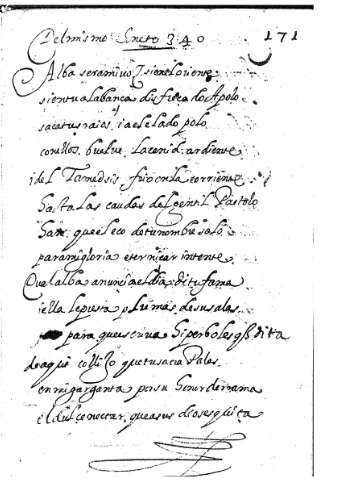 Del mismo Soneto 340 171
Alba sera mi voz, si en el oriente
si en tu alabança disfreça do Apolo
saca tus raios, i a el elado polo
con ellos buelve la cenid ardiente
i del Tamedsis frio en la corriente
hasta las caudas del gentil Pastolo
hare que el eco de tu nombre solo
para mi gloria eternizar intente
Que el alba anuncia el dia, di tu fama
i ella le presta plumas de sus alas
para que escriva Hiperboles q̃ dita
de aqui colligo que tu sacra Palas
en mi garganta por su honr derrama
el dulce nectar, que a sus dioses quita